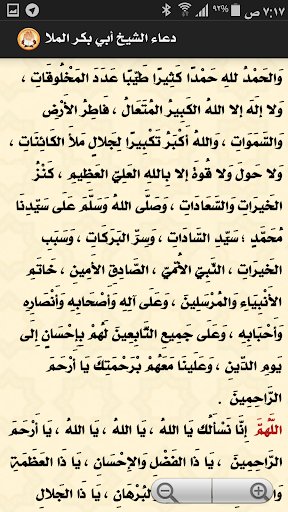 ٧:١٧ ص
٩٢%
دعاء الشيخ أبي بكر الملا
وَالْحَمْدُ للهِ حَمْدًا كَثِيرًا طَيِّبًا عَدَدَ الْمَخْلُوقَاتِ ،
وَلا إِلَهَ إلا اللهُ الْكَبِيرُ الْمُتَعَالُ ، فَاطِرُ الأَرْضِ
وَالسَّمَوَاتِ ، وَاللهُ أَكْبَرُ تَكْبِيرًا لِجَلالِ مَلأَ الكَائِنَاتِ ،
وَلا حَولَ وَلا قُوةَ إلا بِاللهِ العَلِيِّ العَظِيمِ ، كَنْزُ
الْخَيرَاتِ وَالسَّعَادَاتِ ، وَصَلَّى اللهُ وَسَلَّمَ عَلَى سَيِّدِنَا
مُحَمَّدٍ ؛ سَيِّدِ السَّادَاتِ ، وَسِرِّ البَرَكَاتِ ، وَسَبَبِ
الخَيرَاتِ ، النَّبِيِّ الأُمِّيِّ ، الصَّادِقِ الأَمِينِ ، خَاتَمِ
الأَنْبِيَاءِ وَالْمُرْسَلِينَ ، وَعَلَى آلِهِ وَأَصْحَابِهِ وَأَنْصَارِهِ
وَأَحْبَابِهِ ، وَعَلَى جَمِيعِ التَّابِعِينَ لَهُمْ بِإِحْسَانٍ إِلَى
يَومِ الدِّينِ ، وَعَلَينَا مَعَهُمْ بِرَحْمَتِكَ يَا أَرْحَمَ
الرَّاحِمِينَ .
اللَّهُمَّ إِنَّا نَسْأَلُكَ يَا اللهُ ، يَا اللهُ ، يَا اللهُ ، يَا أَرْحَمَ
الرَّاحِمِينَ ، يَا ذَا الفَضْلِ وَالإِحْسَانِ ، يَا ذَا العَظَمَةِ
وَالْبُرْهَانِ ، يَا ذَا الجَلالِ